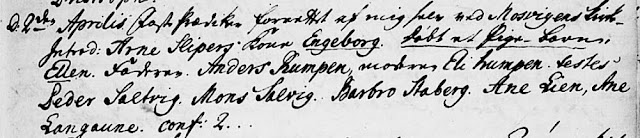 D. 2den Aprilis. fast Prædiken forrettet af mig selv ved Mosvigens Kirk-
Introd: Arne Slipers Kone Engeborg. døbt et Pige-Barn,
Ellen. Faderen Anders Rumpen, moderen Eli Rumpen. testes
Peder Saltvig. Mons Salvig. Barbro Staberg. Ane Lien, Ane
Langaune. conf: 2...